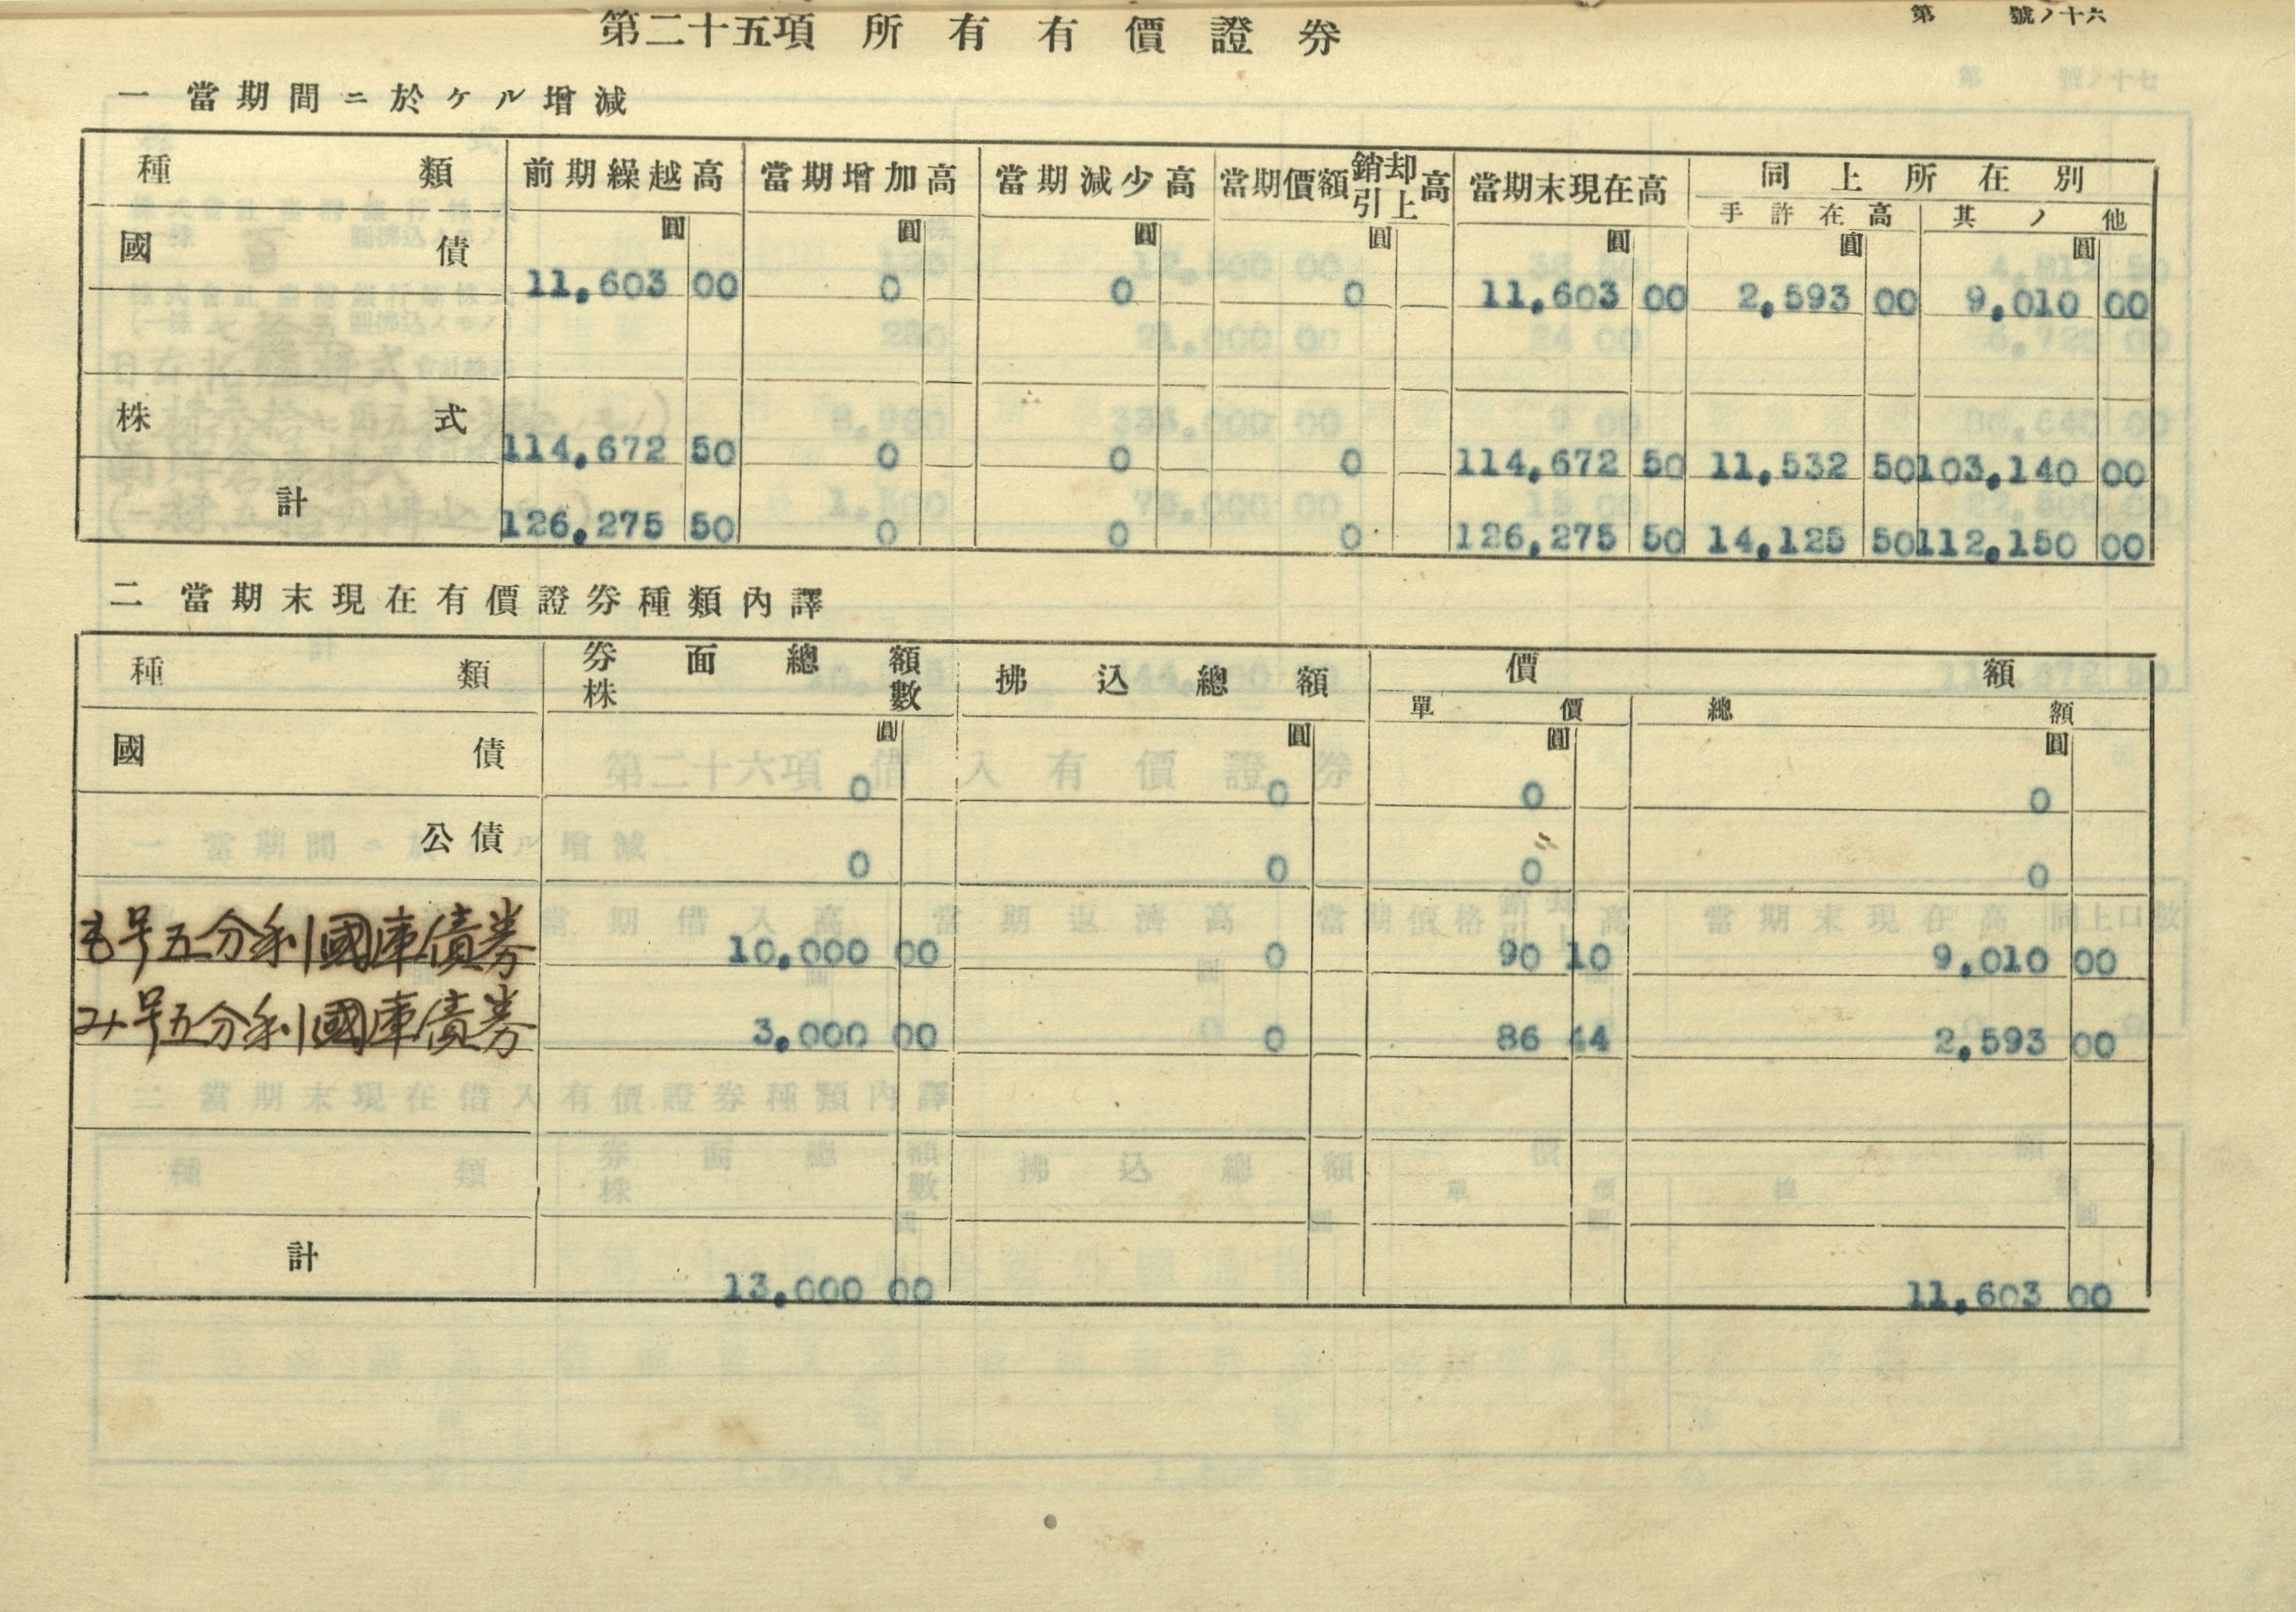 第　　號ノ十六
第二十五項 所有有價證券
一 當期間ニ於ケル增減
種類 前期繰越高 當期增加高 當期減少高 當期價額銷却引上高 當期末現在高 同上所在別
手許在高 其ノ他
圓 圓 圓 圓 圓 圓 圓
國債 11,603 00 0 0 0 11,603 00 2,593 00 9,010 00
株式 114,672 50 0 0 0 114,672 50 11,532 50 103,140 00
計 126,275 50 0 0 0 126,275 50 14,125 50 112,150 00
二 當期末現在有價證券種類內譯
種類 券面總額 株數 拂込總額 價額
單價 總額
圓 圓 圓 圓
國債 0 0 0 0
公債 0 0 0 0
も号五分利國庫債券 10,000 00 0 90 10 9,010 00
み号五分利國庫債券 3,000 00 0 86 44 2,593 00
計 13,000 00 11,603 00